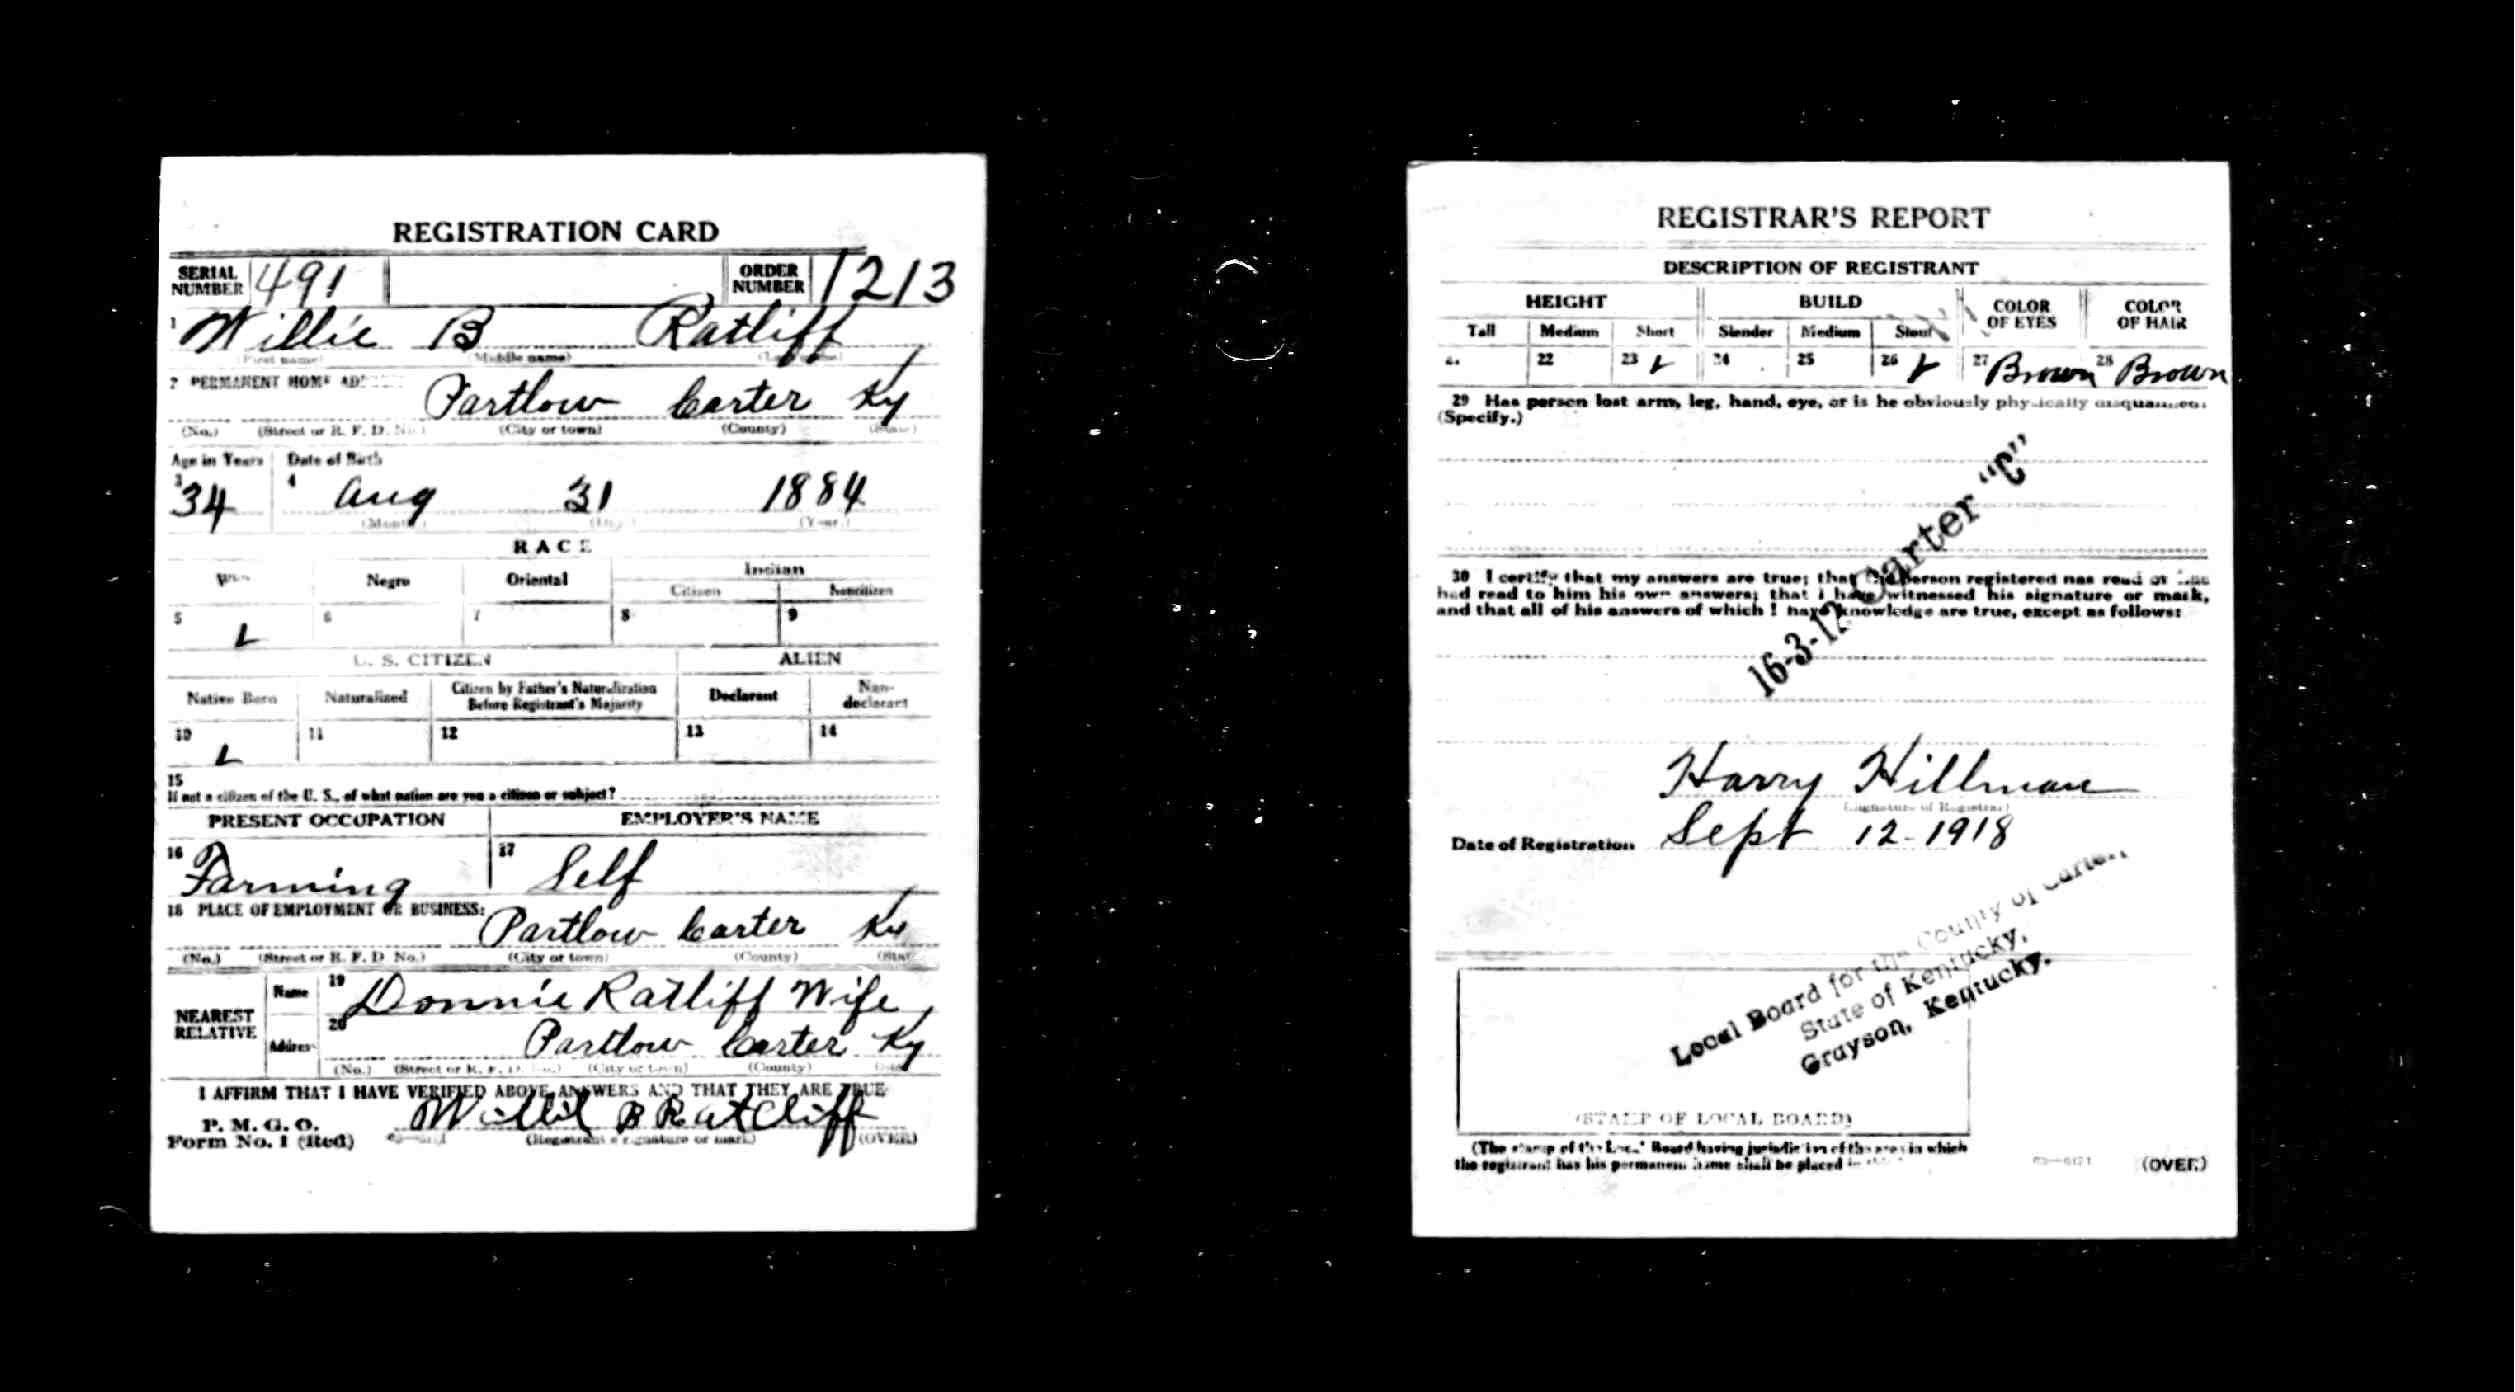 REGISTRATION CARD
SERIAL NUMBER 491 ORDER NUMBER 1213
1 Willie B Ratliff
(First name) (Middle name) (Last name)
2 PERMANENT HOME Partlow Carter Ky
(No.) (Street or R. F. D. No.) (City or town) (County) (State)
Age in Years Date of Birth
3 34 4 Aug 31 1884
(Month.) (Day.) (Year.)
RACE
Negro Oriental Indian
Citizen Noncitizen
5 L 6 7 8 9
U. S. CITIZEN ALIEN
Native Born Naturalized Citizen by Father's Naturalization Before Registrant's Majority Declarant Non-declarant
10 L 11 12 13 14
15
If not a citizen of the U. S., of what nation are you a citizen or subject?
PRESENT OCCUPATION EMPLOYER'S NAME
16 Farming 17 Self
18 PLACE OF EMPLOYMENT OR BUSINESS: Partlow Carter Ky
(No.) (Street or R. F. D. No.) (City or town) (County) (State)
NEAREST RELATIVE Name 19 Donnie Ratliff Wife
Address 20 Partlow Carter Ky
(No.) (Street or R. F. D. No.) (City or town) (County) (State)
I AFFIRM THAT I HAVE VERIFIED ABOVE ANSWERS AND THAT THEY ARE TRUE
P. M. G. O.
Form No. 1 (Red) Willie B Ratcliff
(Registrant's signature or mark) (OVER)
REGISTRAR'S REPORT
DESCRIPTION OF REGISTRANT
HEIGHT BUILD COLOR OF EYES COLOR OF HAIR
Tall Medium Short Slender Medium Stout
22 23 L 24 25 26 L 27 Brown 28 Brown
29 Has person lost arm, leg, hand, eye, or is he obviously physically disqualified?
(Specify.)
16-3-12 Carter "C"
30 I certify that my answers are true; that the person registered has read or has
had read to him his own answers; that I have witnessed his signature or mark,
and that all of his answers of which I have knowledge are true, except as follows:
Harry Hillman
(Signature of Registrar)
Date of Registration Sept 12-1918
Local Board for the County of Carter,
State of Kentucky,
Grayson, Kentucky.
(STAMP OF LOCAL BOARD)
(The stamp of the Local Board having jurisdiction of the area in which
the registrant has his permanent home shall be placed in
(OVER)